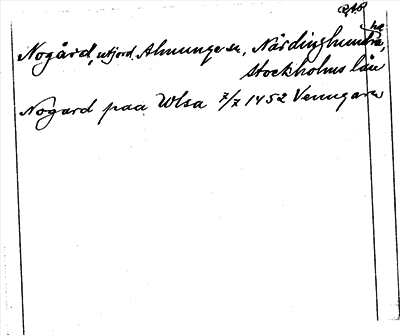 Nogård, utjord, Almunge sn, Närdinghundra hd,
Stockholms län
Nogard paa Wlsa 7/7 1452 Venngarn